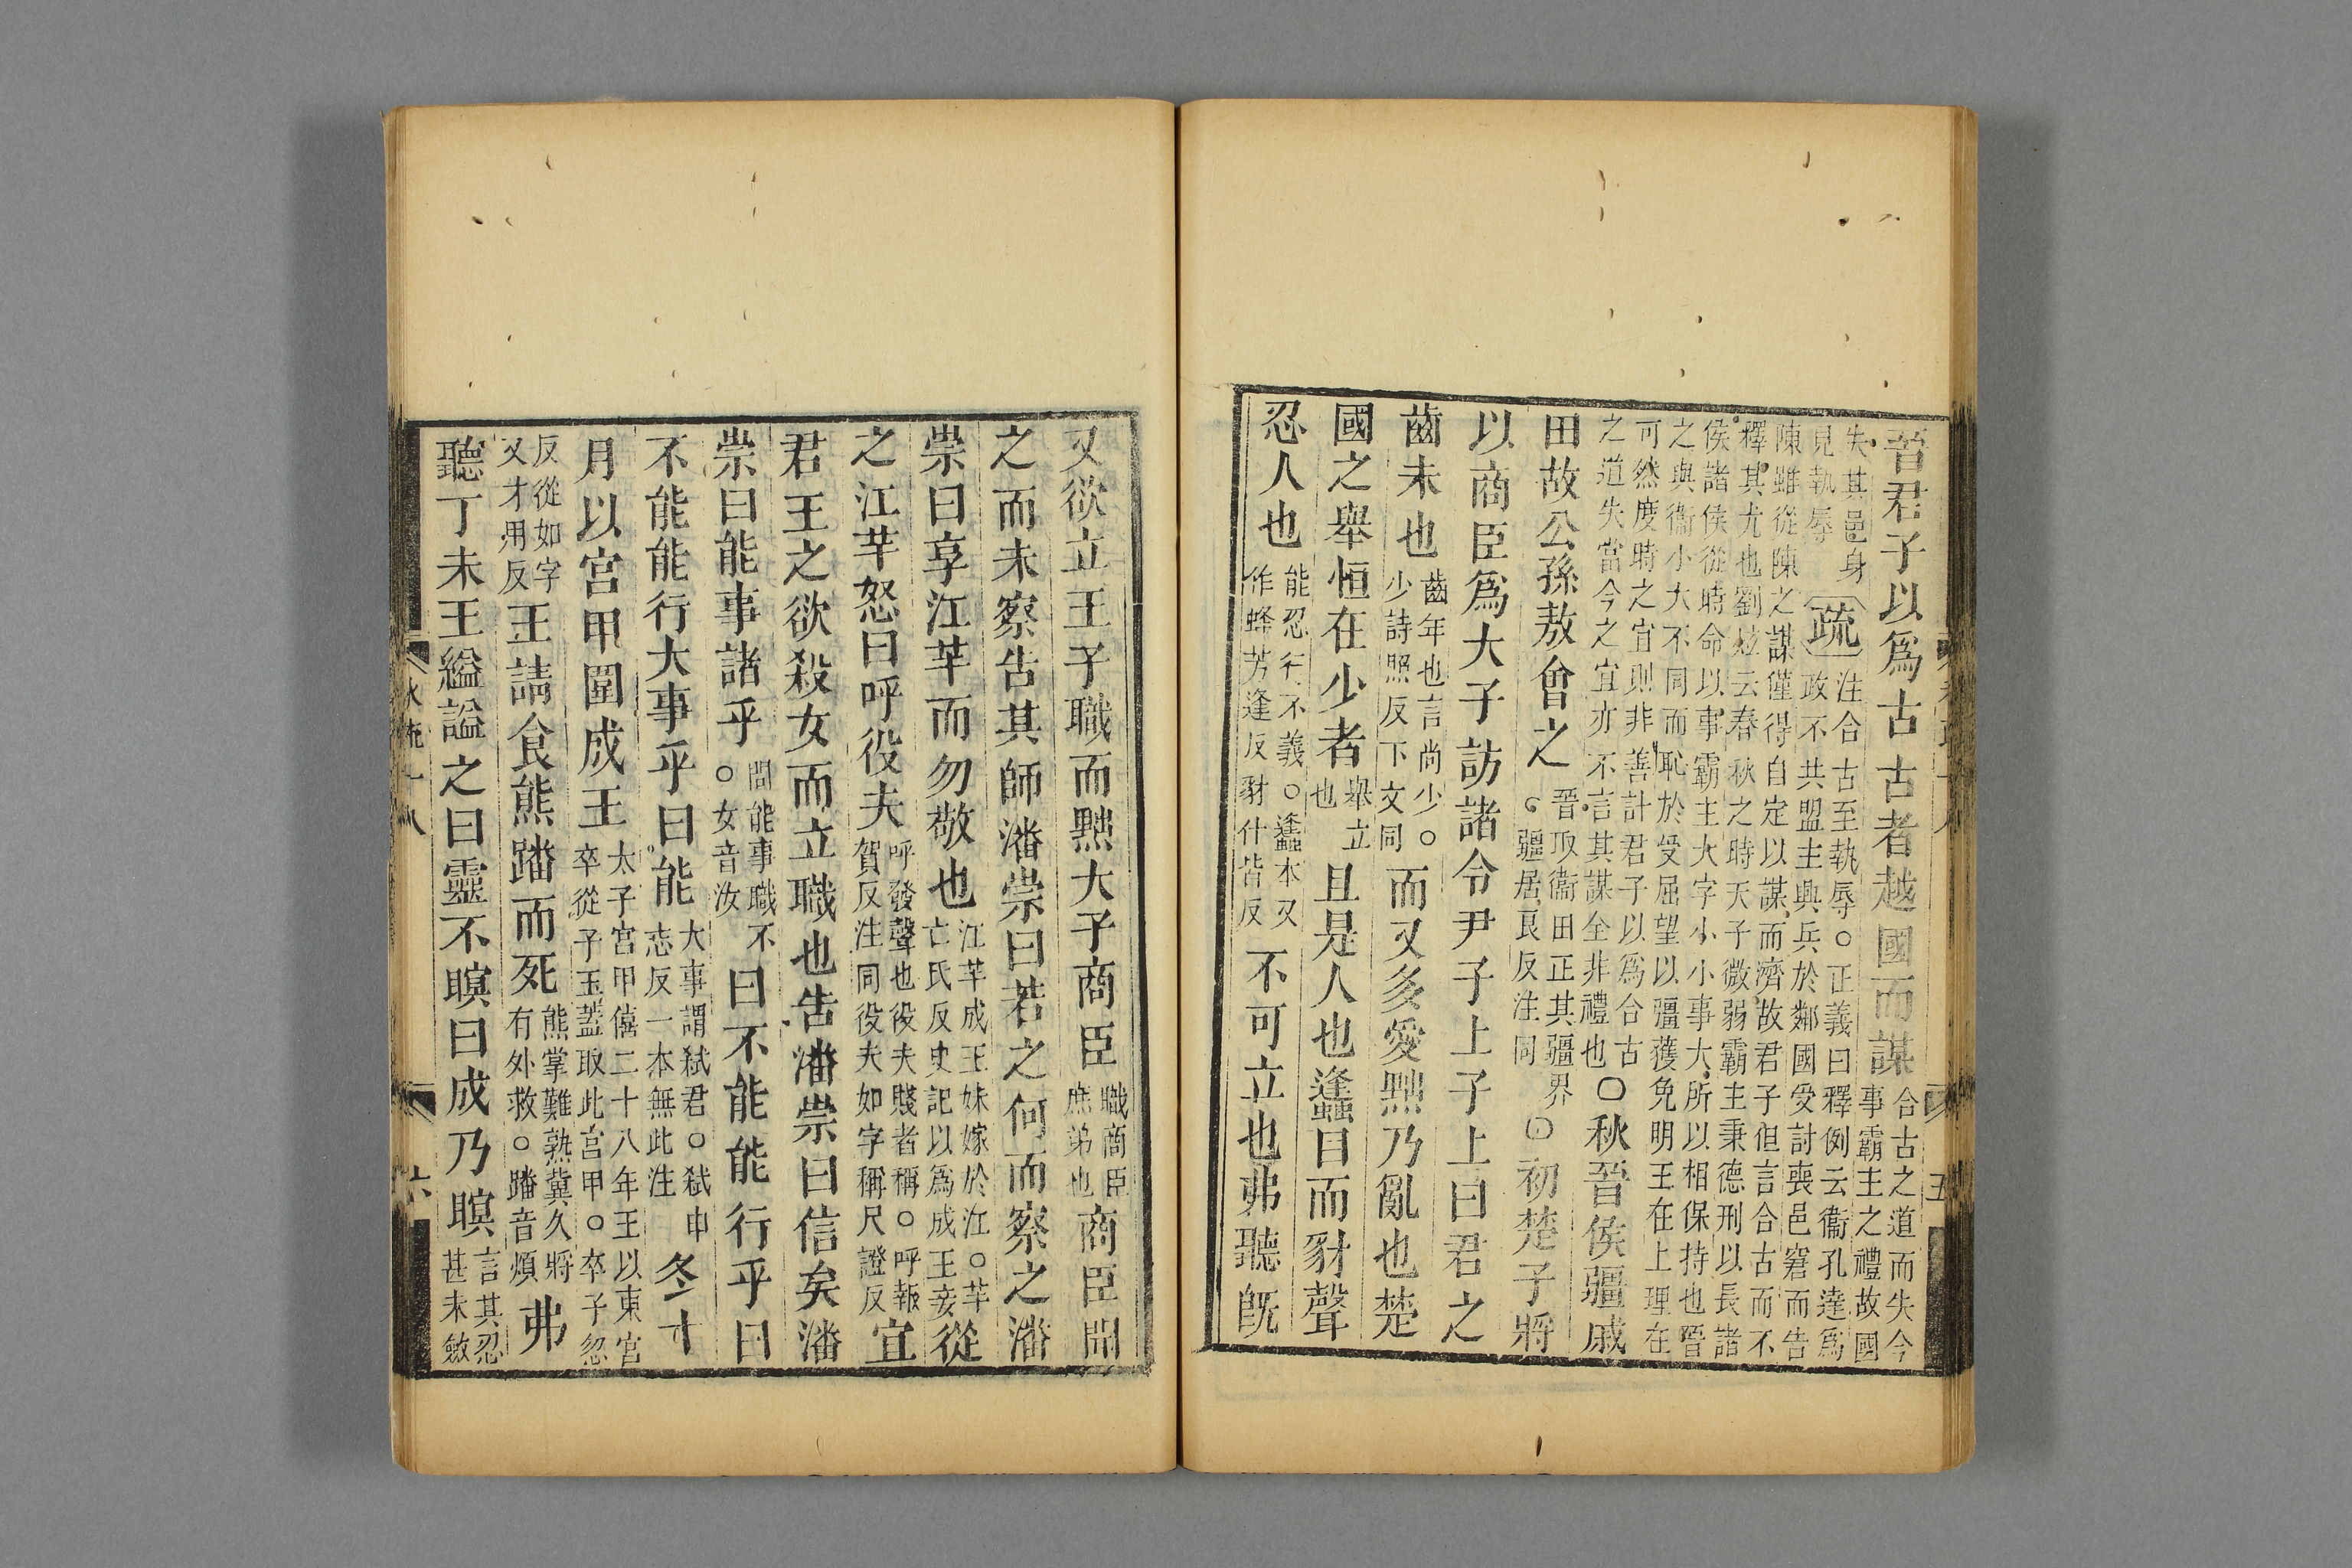 晉君子以爲古古者越國而謀合古之道而失今事霸主之禮故國
失其邑身見執辱疏注合古至執辱○正義曰釋例云衞孔達爲政不共盟主興兵於鄰國受討喪邑窘而告
陳雖從陳之謀僅得自定以謀而濟故君子但言合古而不釋其尤也劉炫云春秋之時天子微弱霸主秉德刑以長諸
侯諸侯從時命以事霸主大字小小事大所以相保持也晉之與衞小大不同而恥於受屈望以疆獲免明王在上理在
可然度時之宜則非善計君子以爲合古之道失當今之宜亦不言其謀全非禮也○秋晉侯疆戚
田故公孫敖會之晉取衞田正其疆界○疆居良反注同○初楚子將
以商臣爲大子訪諸令尹子上子上曰君之
齒未也齒年也言尚少○少詩照反下文同而又多愛黜乃亂也楚
國之舉恒在少者舉立也且是人也蠭目而豺聲
忍人也能忍行不義○蠭本又作蜂芳逢反豺什皆反不可立也弗聽既
又欲立王子職而黜大子商臣職商臣庶弟也商臣聞
之而未察告其師潘崇曰若之何而察之潘
崇曰享江芈而勿敬也江芈成王妹嫁於江○芈亡氏反史記以爲成王妾從
之江芈怒曰呼役夫呼發聲也役夫賤者稱○呼報賀反注同役夫如字稱尺證反宜
君王之欲殺女而立職也告潘崇曰信矣潘
崇曰能事諸乎問能事職不○女音汝曰不能能行乎曰
不能能行大事乎曰能大事謂弒君○弒申志反一本無此注冬十
月以宮甲圍成王太子宮甲僖二十八年王以東宮卒從子玉蓋取此宮甲○卒子忽
反從如字又才用反王請食熊蹯而死熊掌難熟冀久將有外救○蹯音煩弗
聽丁未王縊謚之曰靈不瞑曰成乃瞑言其忍甚未斂